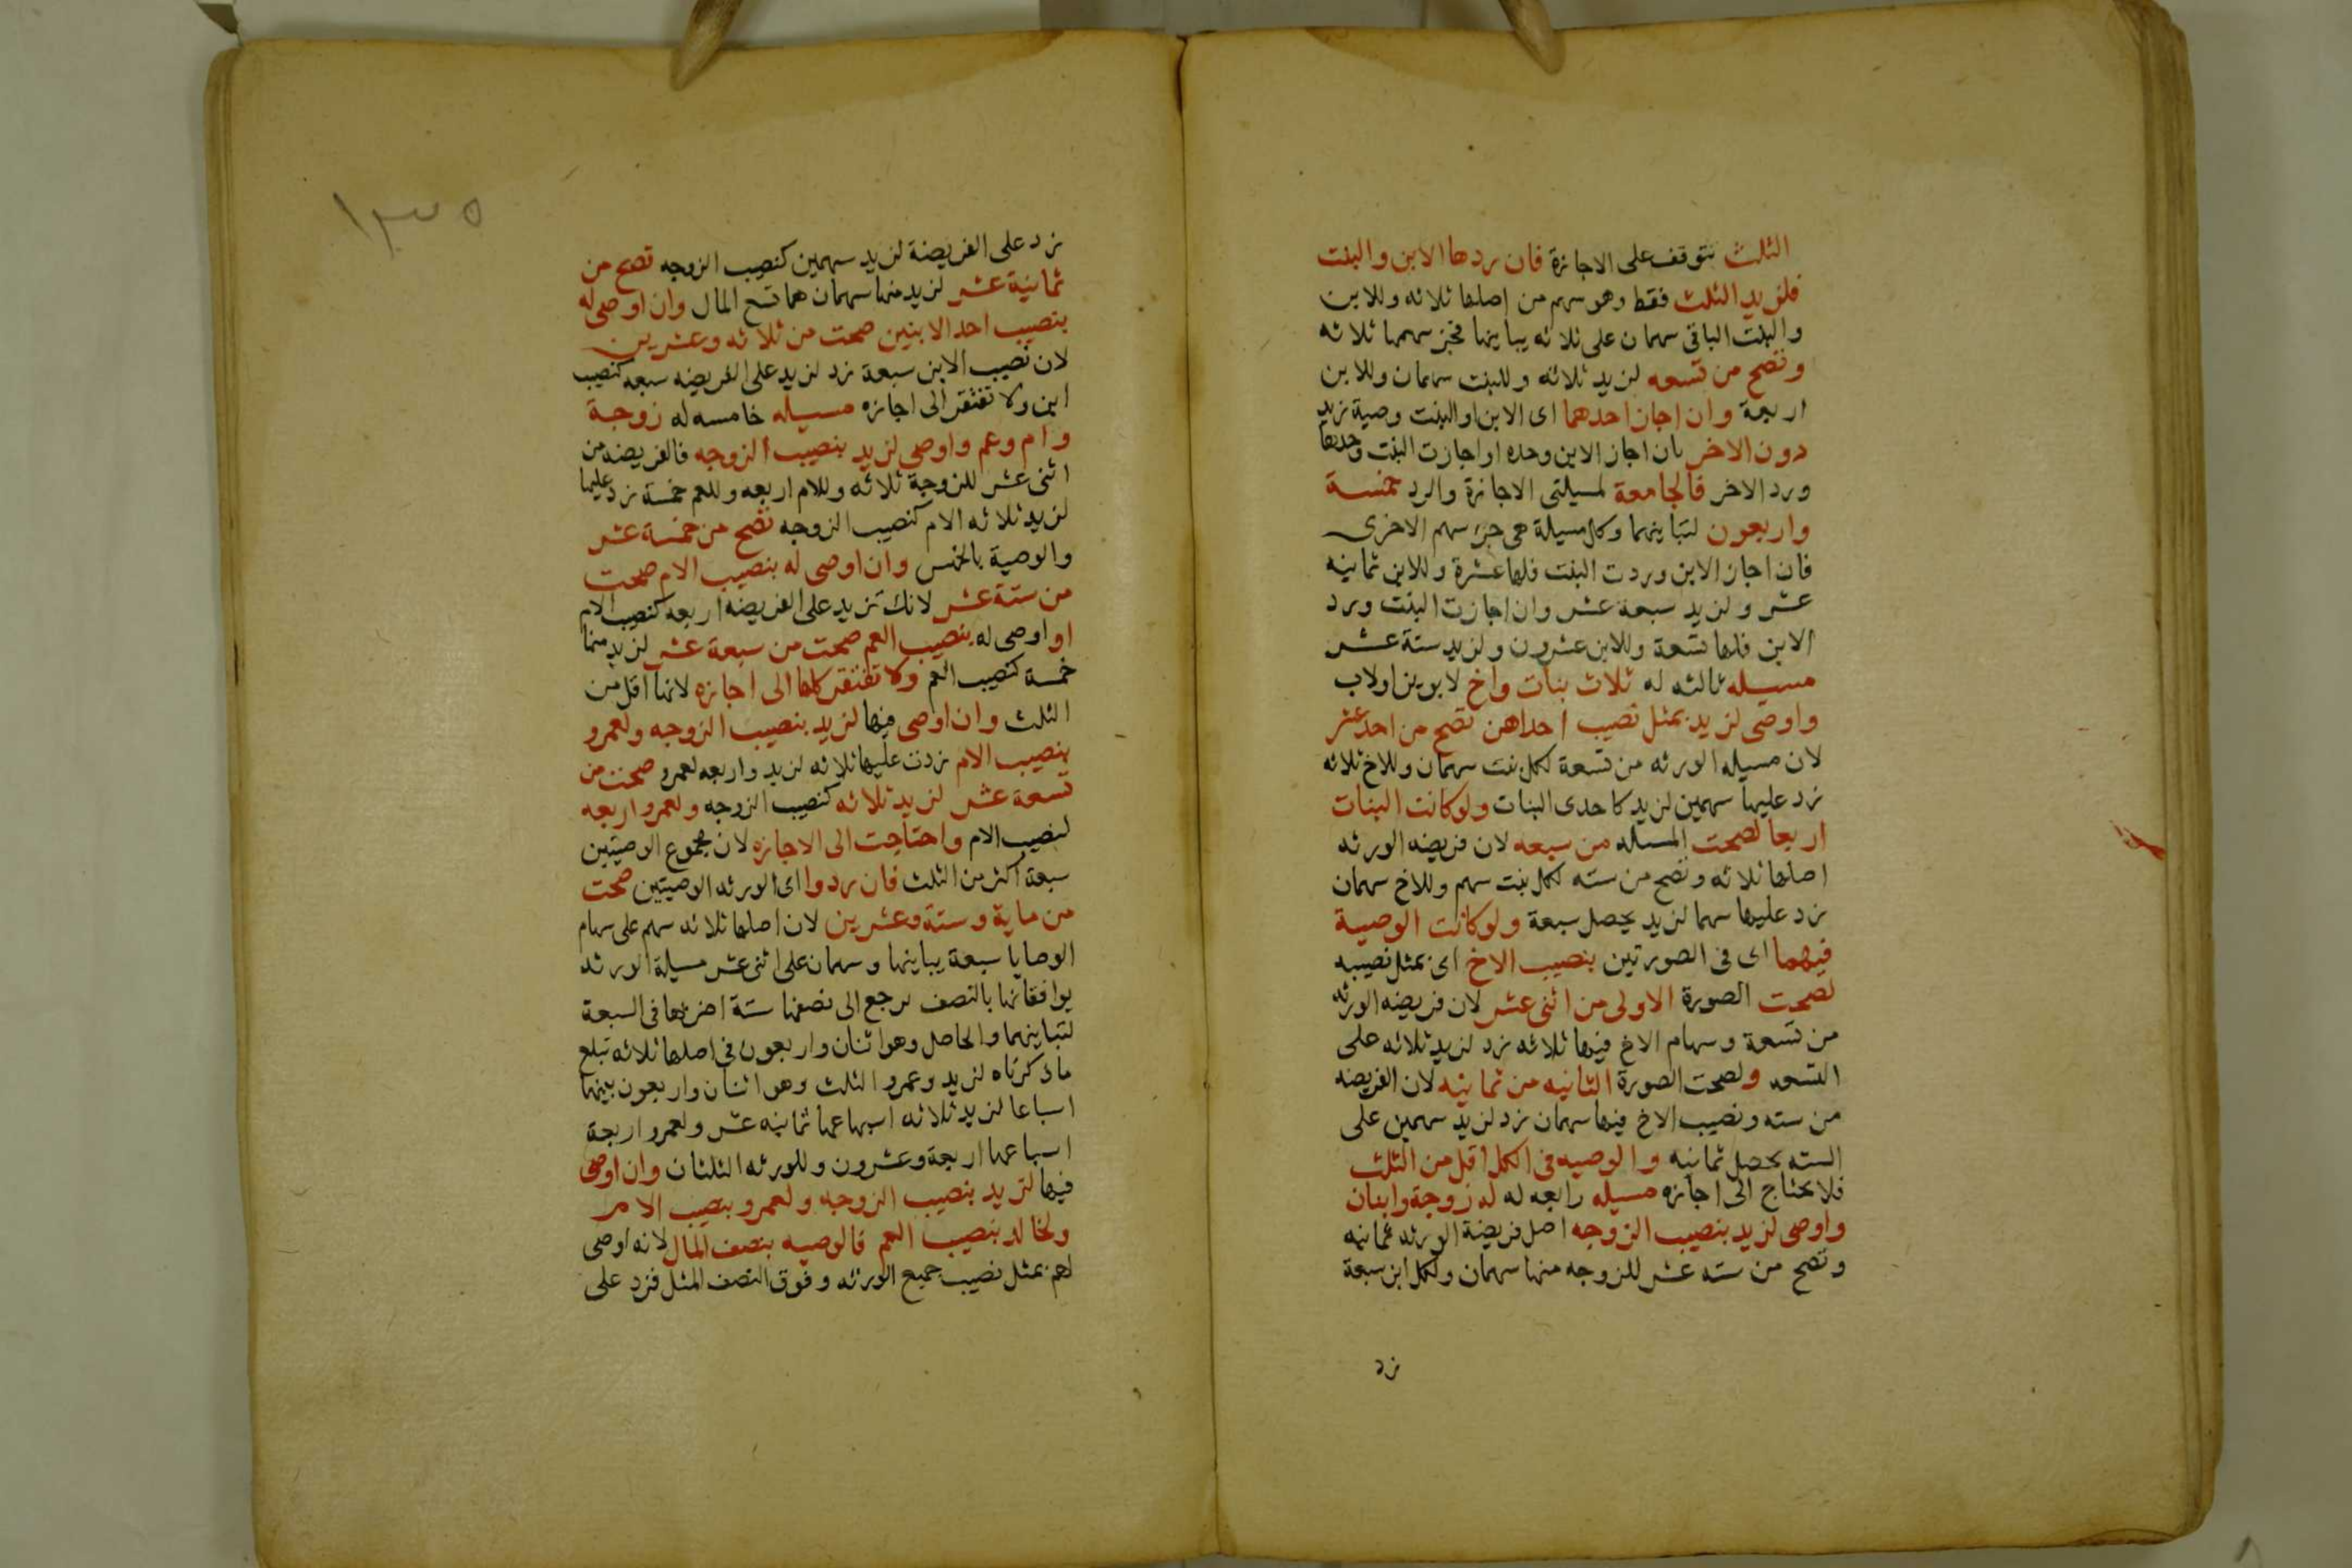 الثلث تتوقف على الاجازة فان ردها الابن والبنت
فلزيد الثلث فقط وهو سهم من اصلها ثلاثه وللابن
والبنت الباقى سهمان على ثلاثه يباينها فجز سهمها ثلاثه
وتصح من تسعه لزيد ثلاثه وللبنت سهمان وللابن
اربعة وان اجاز احدهما اى الابن او البنت وصية زيد
دون الاخر بان اجاز الابن وحده او اجازت البنت وحدها
ورد الاخر فالجامعة لمسيلتى الاجازة والرد خمسة
واربعون لتباينهما وكل مسيلة هى جزء سهم الاخرى
فان اجاز الابن وردت البنت فلها عشرة وللابن ثمانيه
عشر ولزيد سبعة عشر وان اجازت البنت ورد
الابن فلها تسعة وللابن عشرون ولزيد ستة عشر
مسيله ثالثه له ثلاث بنات واخ لابوين اولاب
واوصى لزيد بمثل نصيب احداهن تصح من احد عشر
لان مسيله الورثه من تسعة لكل بنت سهمان وللاخ ثلاثه
زد عليها سهمين لزيد كاحدى البنات ولو كانت البنات
اربعا لصحت المسله من سبعه لان فريضه الورثه
اصلها ثلاثه وتصح من سته لكل بنت سهم وللاخ سهمان
زد عليها سهما لزيد يحصل سبعة ولو كانت الوصية
فيهما اى فى الصورتين بنصيب الاخ اى بمثل نصيبه
لصحت الصورة الاولى من اثنى عشر لان فريضه الورثه
من تسعة وسهام الاخ فيها ثلاثه زد لزيد ثلاثه على
التسعه ولصحت الصورة الثانيه من ثمانيه لان الفريضه
من سته ونصيب الاخ فيها سهمان زد لزيد سهمين على
السته يحصل ثمانيه والوصيه فى الكل اقل من الثلث
فلا يحتاج الى اجازه مسيله رابعه له له زوجة وابنان
واوصى لزيد بنصيب الزوجه اصل فريضة الورثه ثمانيه
وتصح من سته عشر للزوجه منها سهمان ولكل ابن سبعة
زد
١٣٥
زد على الفريضة لزيد سهمين كنصيب الزوجه تصح من
ثمانية عشر لزيد منها سهمان هما تسع المال وان اوصى له
بنصيب احد الابنين صحت من ثلاثه وعشرين
لان نصيب الابن سبعة زد لزيد على الفريضه سبعه كنصيب
ابن ولا تفتقر الى اجازه مسيله خامسه له زوجة
وام وعم واوصى لزيد بنصيب الزوجه فالفريضه من
اثنى عشر للزوجة ثلاثه وللام اربعه وللعم خمسة زد عليها
لزيد ثلاثه الام كنصيب الزوجه تصح من خمسة عشر
والوصية بالخمس وان اوصى له بنصيب الام صحت
من ستة عشر لانك تزيد على الفريضه اربعه كنصيب الام
او اوصى له بنصيب العم صحت من سبعة عشر لزيد منها
خمسة كنصيب العم ولا تفتقر كلها الى اجازه لانها اقل من
الثلث وان اوصى فيها لزيد بنصيب الزوجه ولعمرو
بنصيب الام زدت عليها ثلاثه لزيد واربعه لعمرو صحت من
تسعة عشر لزيد ثلاثه كنصيب الزوجه ولعمرو اربعه
لنصيب الام واحتاجت الى الاجازه لان مجموع الوصيتين
سبعة اكثر من الثلث فان ردوا اى الورثه الوصيتين صحت
من ماية وستة وعشرين لان اصلها ثلاثه سهم على سهام
الوصايا سبعة يباينها وسهمان على اثنى عشر مسيلة الورثه
يوافقانها بالنصف نرجع الى نصفها ستة اضربها فى السبعة
لتباينهما والحاصل وهو اثنان واربعون فى اصلها ثلاثه تبلع
ماذكرناه لزيد وعمرو الثلث وهو اثنان واربعون بينهما
اسباعا لزيد ثلاثه اسباعها ثمانيه عشر ولعمرو اربعة
اسباعها اربعة وعشرون وللورثه الثلثان وان اوصى
فيها لزيد بنصيب الزوجه ولعمرو بنصيب الام
ولخالد بنصيب العم فالوصيه بنصف المال لانه اوصى
لهم بمثل نصيب جميع الورثه وفوق النصف المثل فزد على